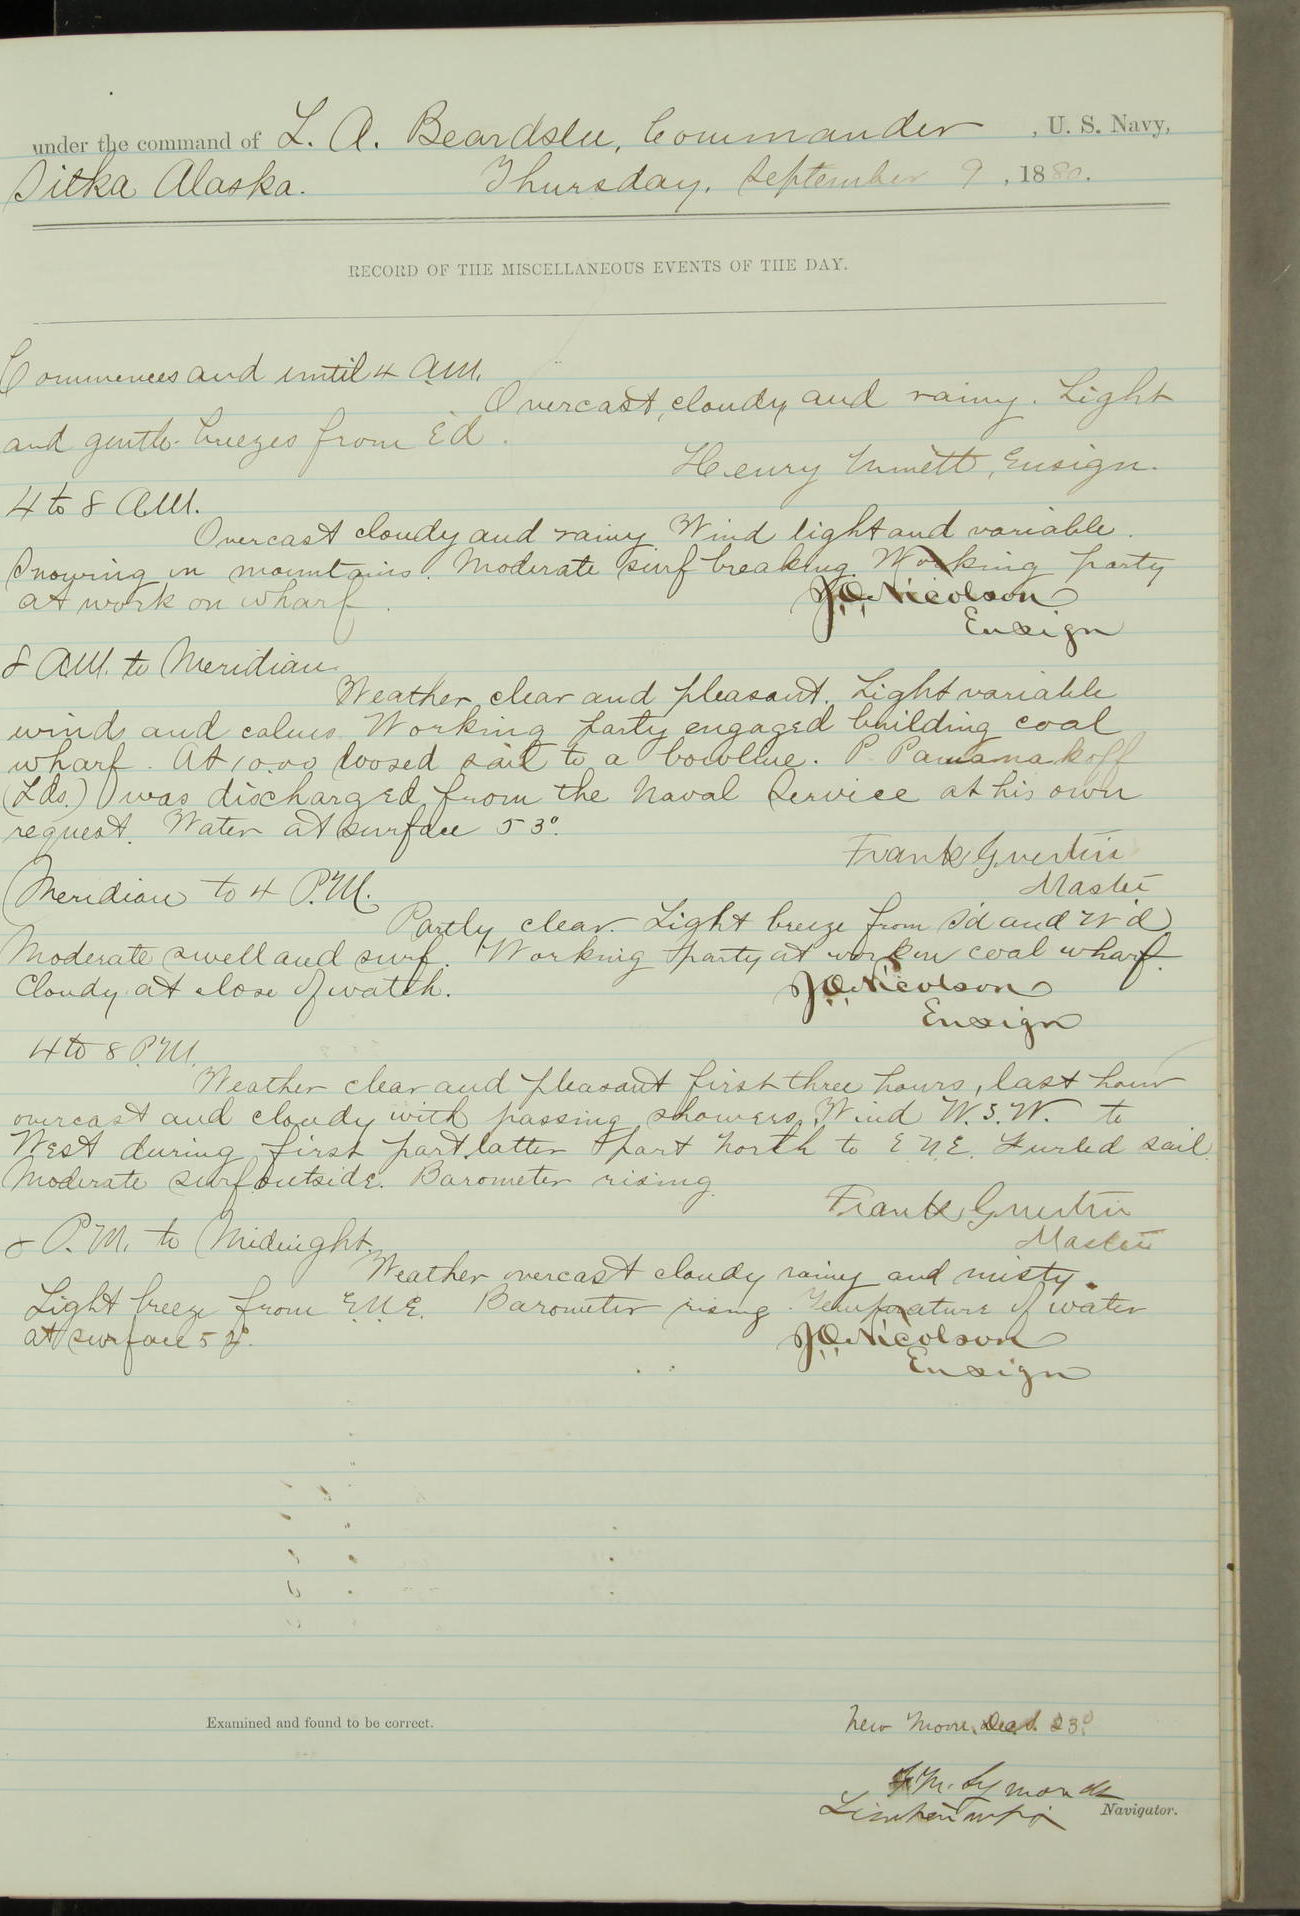 under the command of L. A. Beardslee, Commander, U. S. Navy,
Sitka Alaska. Thursday, September 9, 1880.
RECORD OF THE MISCELLANEOUS EVENTS OF THE DAY.
Commences and until 4 A.M.
Overcast, cloudy and rainy. Light
and gentle breezes from E'd.
Henry Minett, Ensign.
4 to 8 A.M.
Overcast cloudy and rainy. Wind light and variable.
Snowing in mountains. Moderate surf breaking. Working party
at work on wharf.
J.O. Nicolson
Ensign
8 A.M. to Meridian
Weather clear and pleasant. Light variable
winds and calms. Working party engaged building coal
wharf. At 10.00 loosed sail to a bowline. P. Panamakoff
(Lds.) was discharged from the Naval Service at his own
request. Water at surface 53°.
Frank Guertin
Master
Meridian to 4 P.M.
Partly clear. Light breeze from S'd and W'd
Moderate swell and surf. Working party at work on coal wharf.
Cloudy at close of watch.
J.O. Nicolson
Ensign
4 to 8 P.M.
Weather clear and pleasant first three hours, last hour
overcast and cloudy with passing showers. Wind W.S.W. to
West during first part, latter part North to E.N.E. Furled sail.
Moderate surf outside. Barometer rising.
Frank Guertin
Master
8 P.M. to Midnight.
Weather overcast cloudy rainy and misty.
Light breeze from E.N.E. Barometer rising. Temperature of water
at surface 52°.
J.O. Nicolson
Ensign
Examined and found to be correct.
New Moon, 23°
F.M. Symonds
Lieutenant Navigator.